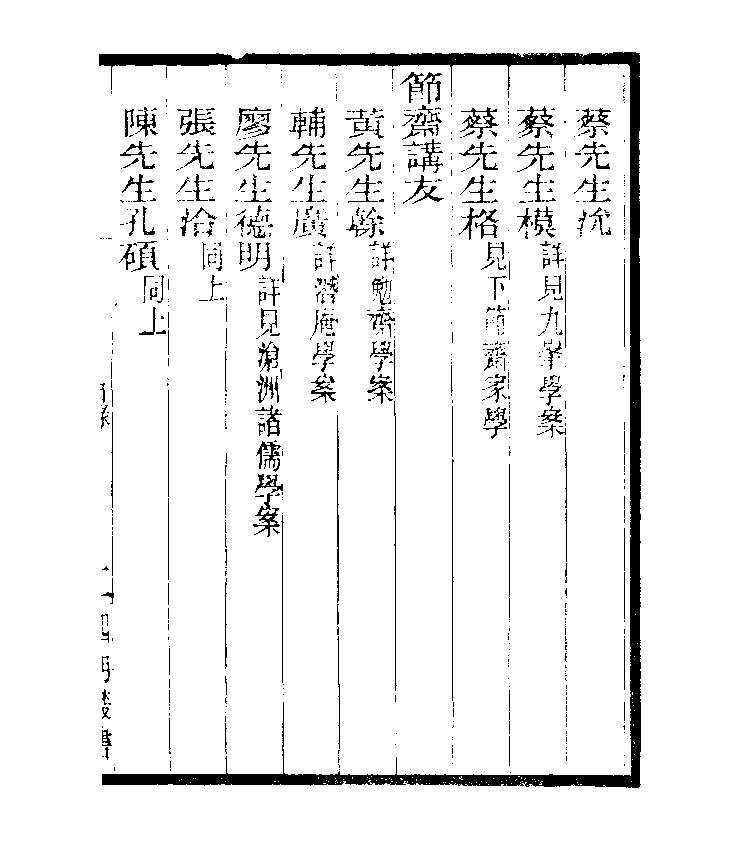 蔡先生沈
蔡先生模詳見九峯學案
蔡先生格見下節齋家學
節齋講友
黃先生榦詳勉齋學案
輔先生廣詳潛庵學案
廖先生德明詳見滄洲諸儒學案
張先生洽同上
陳先生孔碩同上
四明叢書